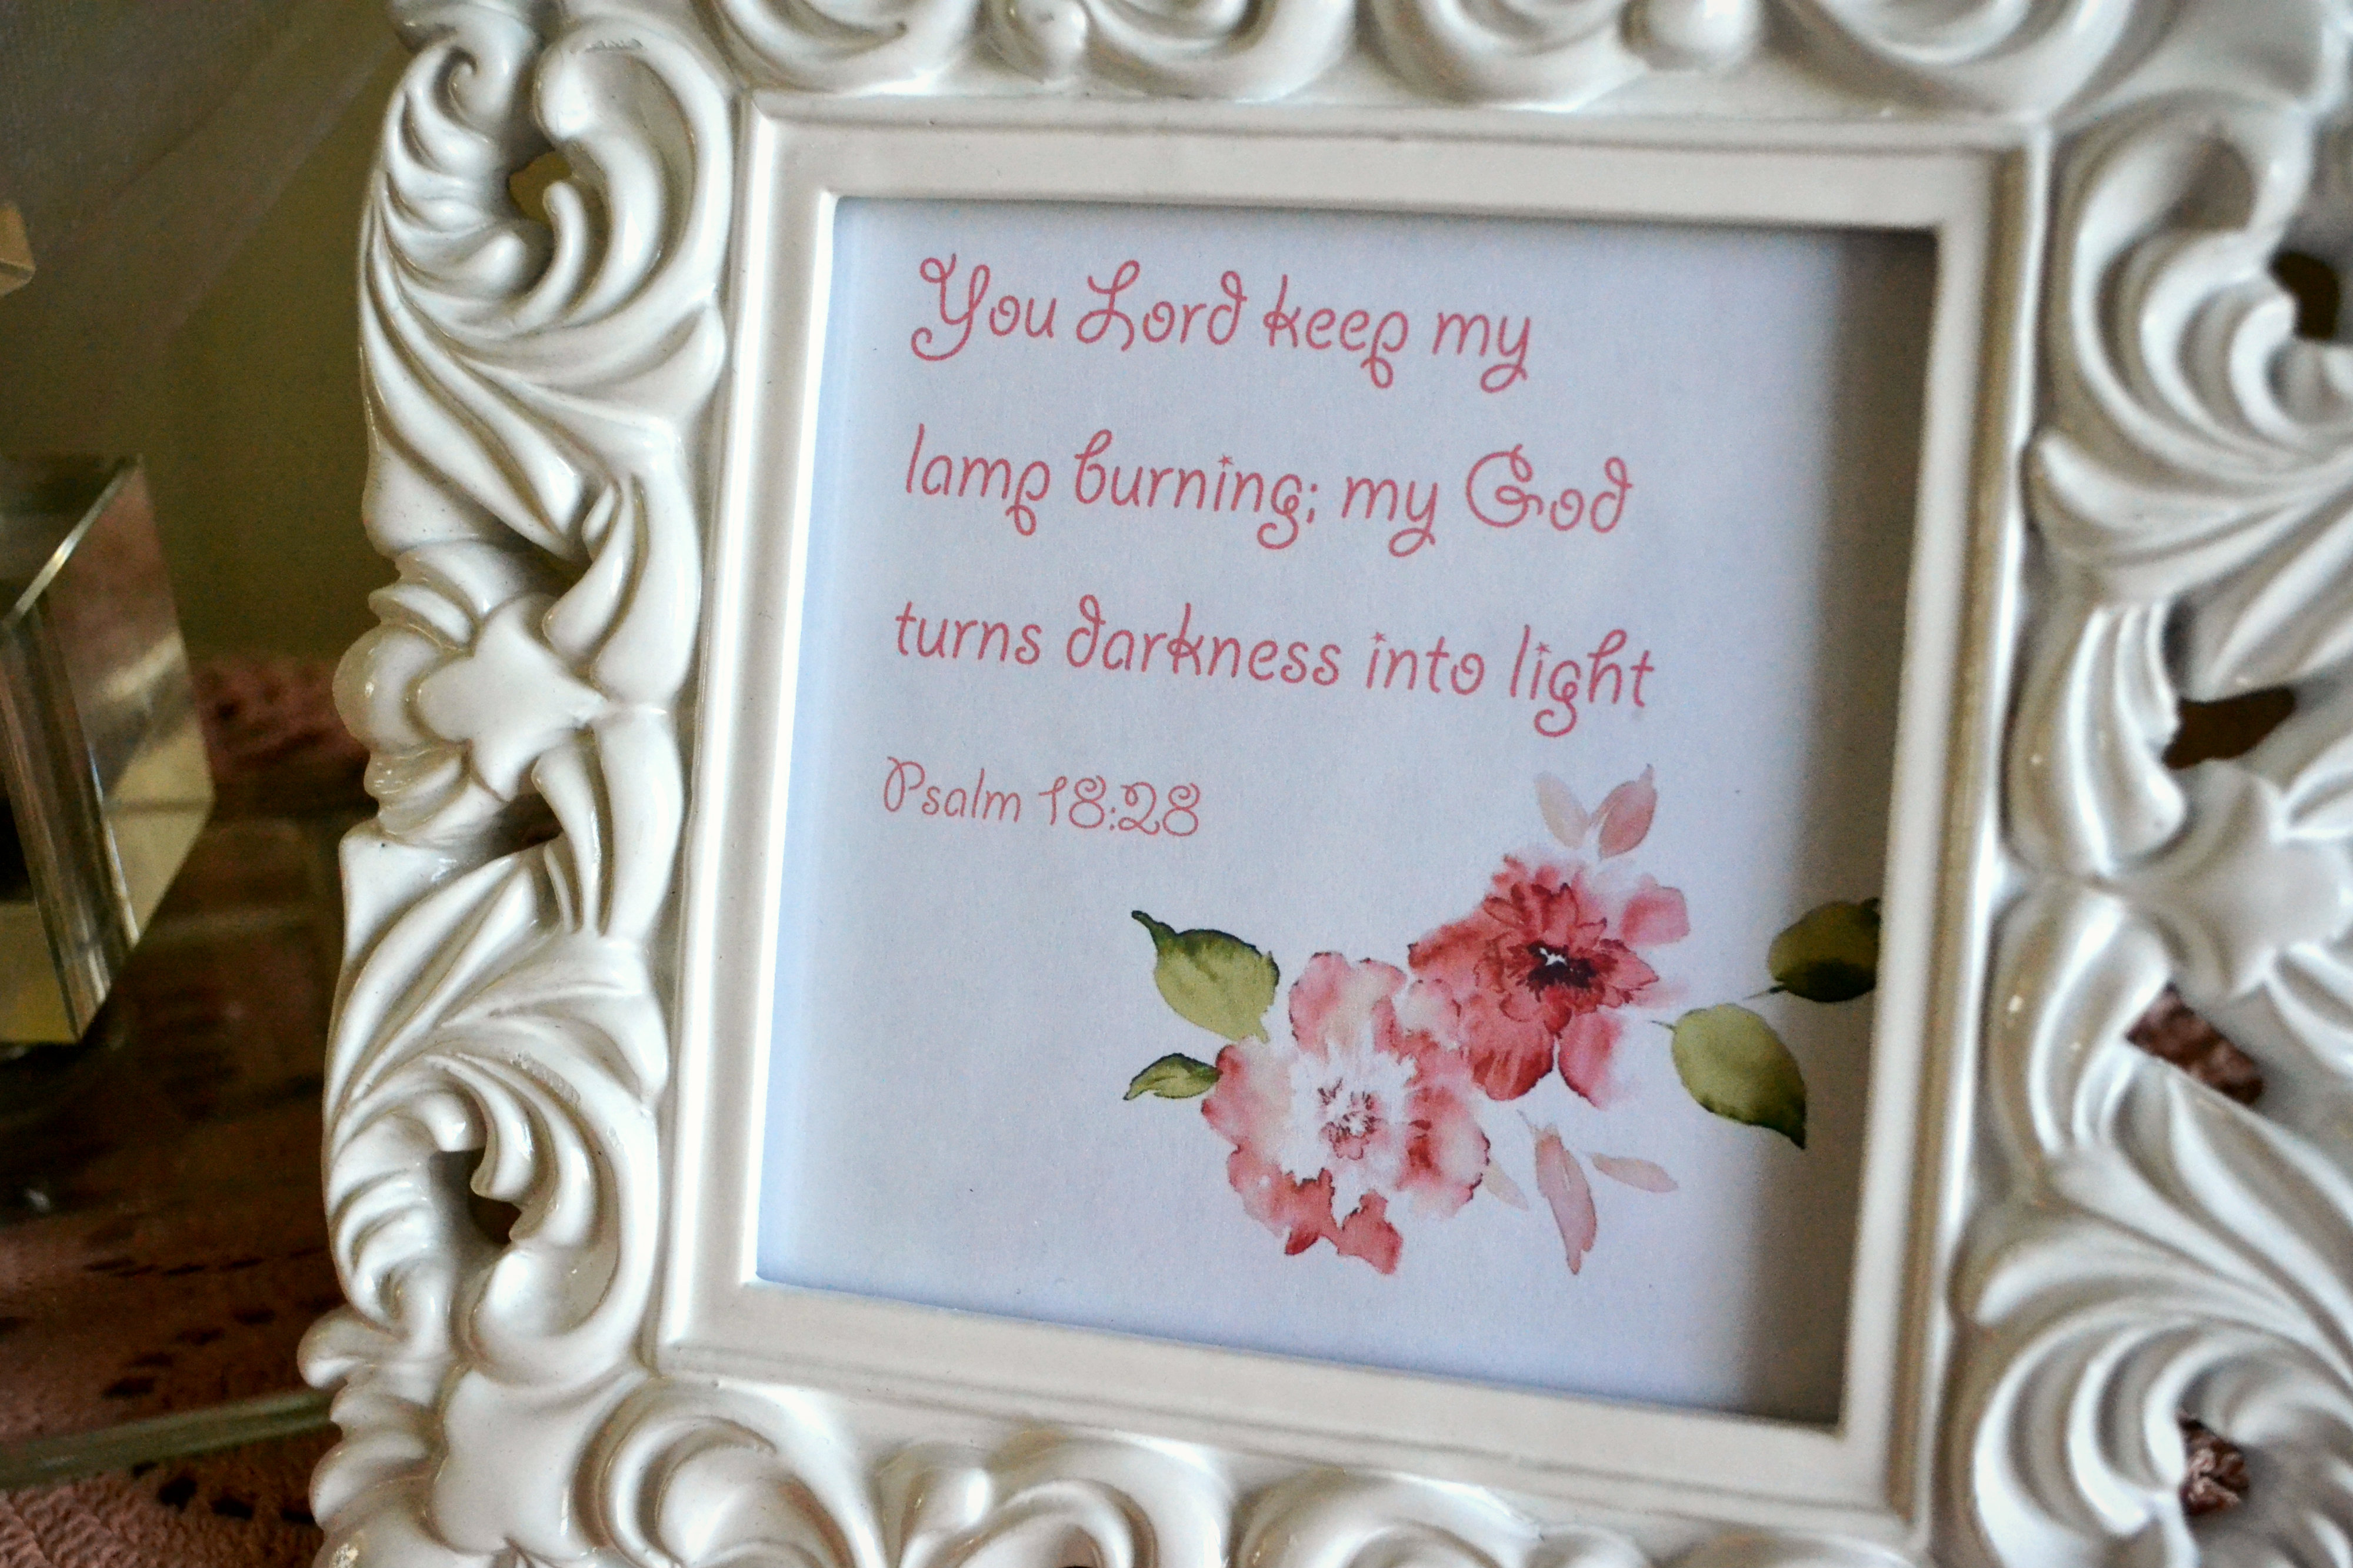 You Lord keep my
lamp burning; my God
turns darkness into light
Psalm 18:28